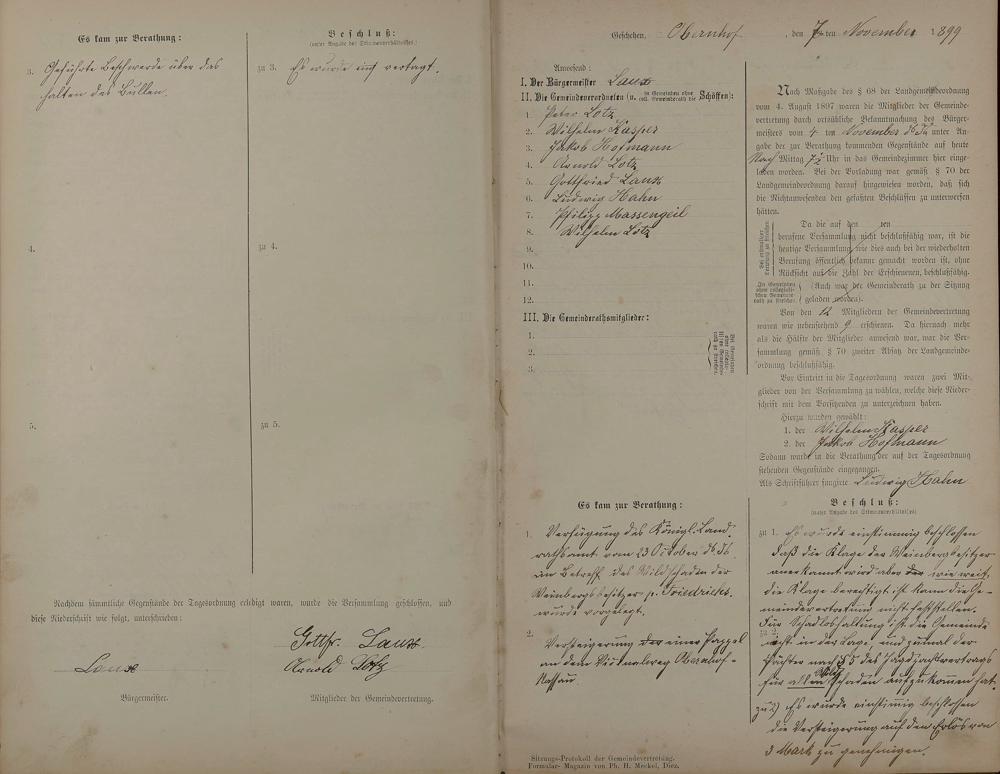 Es kam zur Berathung:
Beschluß:
(unter Angabe des Stimmenverhältnisses.)
3. Geführte Beschwerde über das
halten des Bullen.
zu 3. Es wurde vertagt.
4.
zu 4.
5.
zu 5.
Nachdem sämmtliche Gegenstände der Tagesordnung erledigt waren, wurde die Versammlung geschlossen, und
diese Niederschrift wie folgt, unterschrieben:
Gottfr. Laux.
Laux
Arnold Lotz
Bürgermeister.
Mitglieder der Gemeindevertretung.
Geschehen, Obernhof, den 7ten November 1899
Anwesend:
I. Der Bürgermeister Laux
II. Die Gemeindeverordneten (u. in Gemeinden ohne coll. Gemeinderath die Schöffen):
1. Peter Lotz
2. Wilhelm Kasper
3. Jakob Hofmann
4. Arnold Lotz
5. Gottfried Laux
6. Ludwig Hahn
7. Philipp Massengeil
8. Wilhelm Lotz
9.
10.
11.
12.
III. Die Gemeinderathsmitglieder:
1.
2.
3.
Nach Maßgabe des § 68 der Landgemeindeordnung
vom 4. August 1897 waren die Mitglieder der Gemeinde-
vertretung durch ortsübliche Bekanntmachung des Bürger-
meisters vom 4 ten November ds Js unter An-
gabe der zur Berathung kommenden Gegenstände auf heute
Nach Mittag 7½ Uhr in das Gemeindezimmer hier einge-
laden worden. Bei der Vorladung war gemäß § 70 der
Landgemeindeordnung darauf hingewiesen worden, daß sich
die Nichtanwesenden den gefaßten Beschlüssen zu unterwerfen
hätten.
Da die auf den ten
berufene Versammlung nicht beschlußfähig war, ist die
heutige Versammlung wie dies auch bei der wiederholten
Berufung öffentlich bekannt gemacht worden ist, ohne
Rücksicht auf die Zahl der Erschienenen, beschlußfähig.
(Auch war der Gemeinderath zu der Sitzung
geladen worden).
Von den 12 Mitgliedern der Gemeindevertretung
waren wie nebenstehend 9 erschienen. Da hiernach mehr
als die Hälfte der Mitglieder anwesend war, war die Ver-
sammlung gemäß § 70 zweiter Absatz der Landgemeinde-
ordnung beschlußfähig.
Vor Eintritt in die Tagesordnung waren zwei Mit-
glieder von der Versammlung zu wählen, welche diese Nieder-
schrift mit dem Vorsitzenden zu unterzeichnen haben.
Hierzu wurden gewählt:
1. der Wilhelm Kasper
2. der Jakob Hofmann
Sodann wurde in die Berathung der auf der Tagesordnung
stehenden Gegenstände eingegangen.
Als Schriftführer fungirte Ludwig Hahn
Es kam zur Berathung:
Beschluß:
(unter Angabe des Stimmenverhältnisses)
1. Verfügung des Königl. Land-
rathsamt vom 23 October ds Js
im Betreff des Wildschaden der
Weinbergsbesitzer p. Friedrichs.
wurde vorgelegt.
2. Versteigerung einer Pappel
an dem Vicinalweg Obernhof-
Nassau.
zu 1. Es wurde einstimmig beschlossen
daß die Klage der Weinbergsbesitzer
anerkannt wird aber wie weit
die Klage berechtigt ist kann die Ge-
meindevertretung nicht feststellen.
Für Schadloshaltung ist die Gemeinde
nicht in der Lage und zumal der
Pächter nach § 5 des Jagdpachtvertrags
für allen Wildschaden aufzukommen hat.
zu 2) Es wurde einstimmig beschlossen
die Versteigerung auf den Erlös von
3 Mark zu genehmigen.
Sitzungs-Protokoll der Gemeindevertretung.
Formular-Magazin von Ph. H. Meckel, Diez.